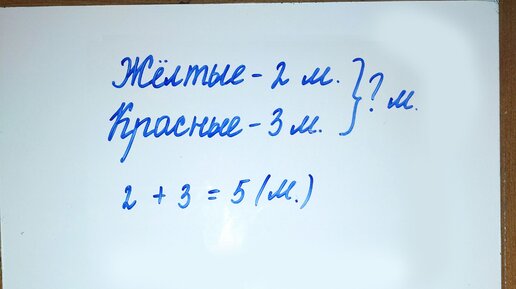 Жёлтые - 2 м.
Красные - 3 м.
} ? м.
2 + 3 = 5 (м.)